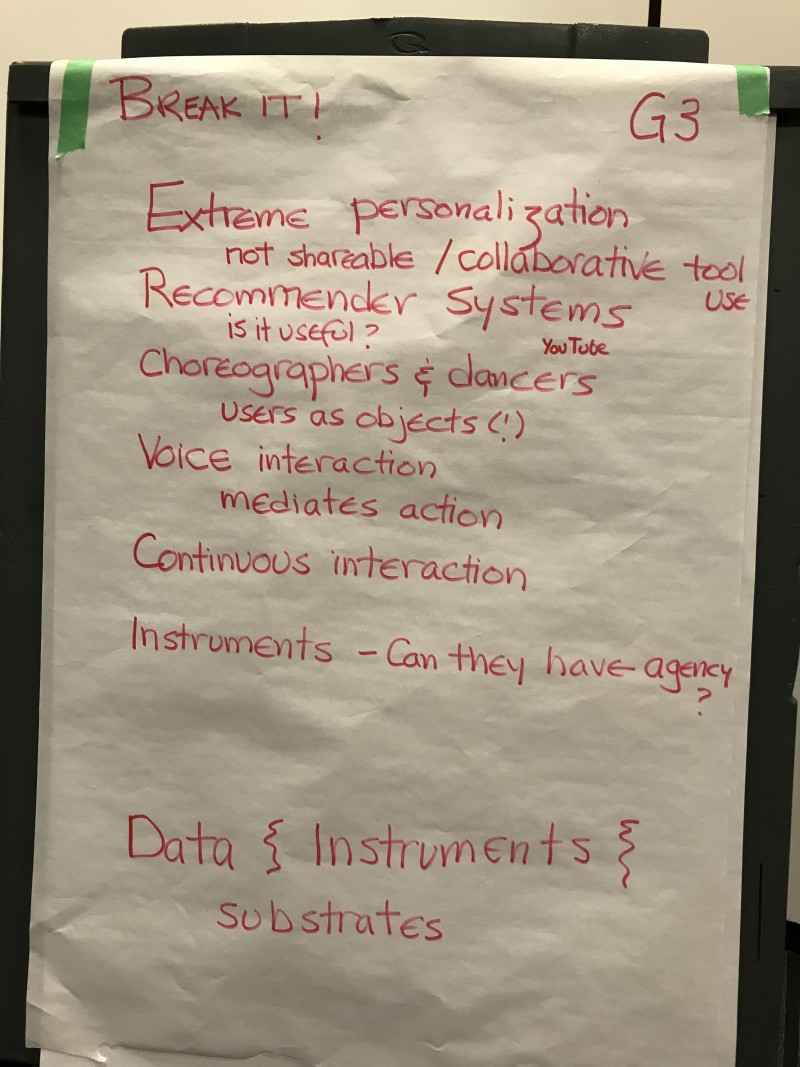 BREAK IT!
G3
Extreme personalization
not shareable / collaborative tool
use
Recommender Systems
is it useful?
YouTube
Choreographers & dancers
users as objects (!)
Voice interaction
mediates action
Continuous interaction
Instruments - Can they have agency
?
Data { Instruments }
substrates